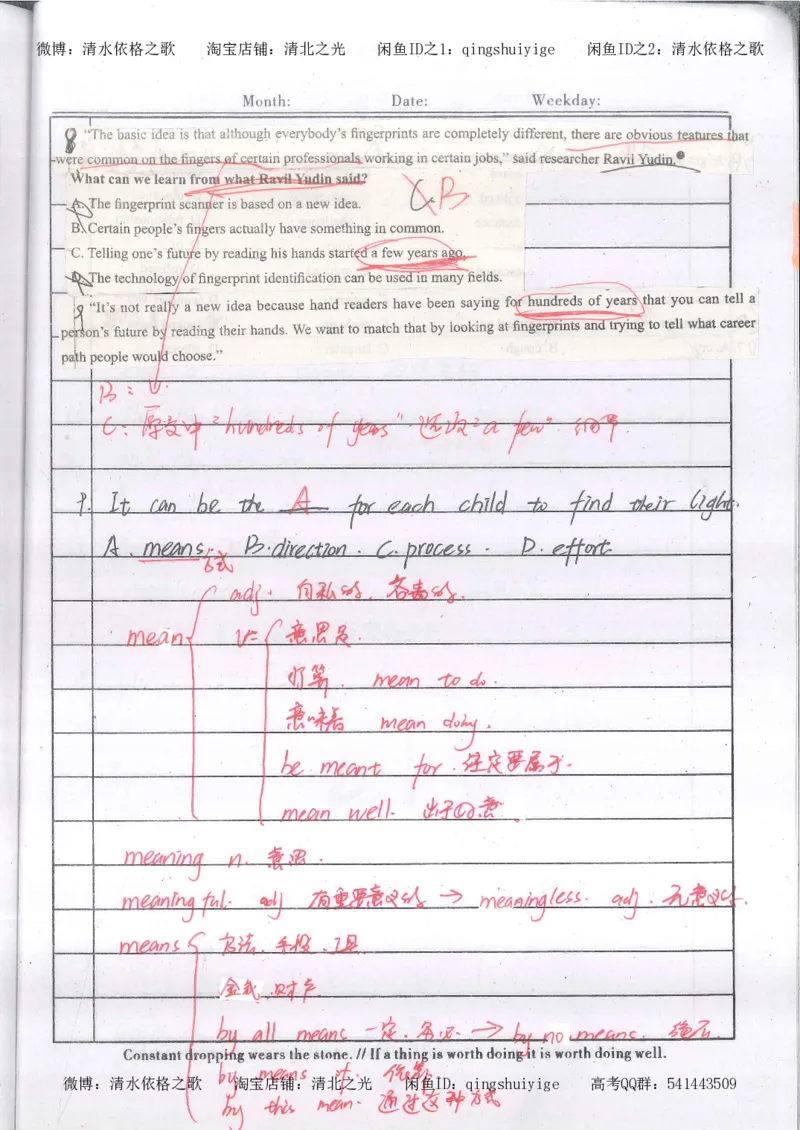 微博：清水依格之歌 淘宝店铺：清北之光 闲鱼ID之1：qingshuiyige 闲鱼ID之2：清水依格之歌
Month: Date: Weekday:
8 “The basic idea is that although everybody’s fingerprints are completely different, there are obvious features that
were common on the fingers of certain professionals working in certain jobs,” said researcher Ravil Yudin.
What can we learn from what Ravil Yudin said?
A. The fingerprint scanner is based on a new idea.
C B
B. Certain people’s fingers actually have something in common.
C. Telling one’s future by reading his hands started a few years ago.
D. The technology of fingerprint identification can be used in many fields.
“It’s not really a new idea because hand readers have been saying for hundreds of years that you can tell a
person’s future by reading their hands. We want to match that by looking at fingerprints and trying to tell what career
path people would choose.”
B：
C：原文中“hundreds of years”选项“a few” 细节.
9. It can be the A for each child to find their light.
A. means. B. direction. C. process. D. effort.
方式
adj. 自私的. 吝啬的.
mean v= 意思是.
打算. mean to do.
意味着 mean doing.
be meant for. 注定要属于.
mean well. 出于好意.
meaning n. 意思.
meaningful. adj 有重要意义的 → meaningless. adj. 无意义的.
means 方法. 手段. 工具
金钱. 财产.
by all means 一定. 务必 → by no means. 绝不.
Constant dropping wears the stone. // If a thing is worth doing it is worth doing well.
by means of.
微博：清水依格之歌 淘宝店铺：清北之光 闲鱼ID：qingshuiyige 高考QQ群：541443509
by this mean. 通过这种方式